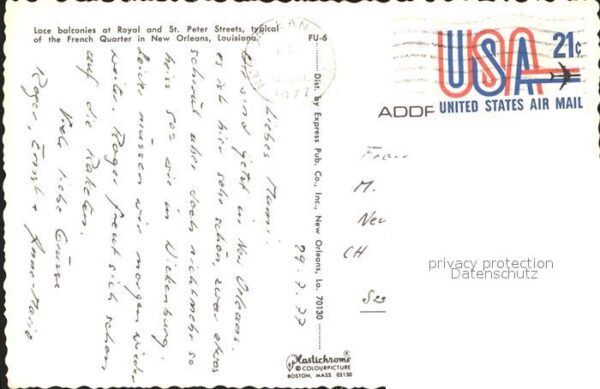 Lace balconies at Royal and St. Peter Streets, typical
of the French Quarter in New Orleans, Louisiana.
FU-6
29.7.77
Liebes Mami!
Wir sind jetzt in New Orleans.
es ist hier sehr schön, zwar etwas
schwül aber doch nicht mehr so
heiss 50° wie in Wickenburg.
Leider müssen wir morgen wieder
weiter. Roger freut sich schon
auf die Raketen.
Viele liebe Grüsse
Roger, Ernst + Anne-Marie
Dist. by Express Pub. Co., Inc., New Orleans, La. 70130
Plastichrome®
© COLOURPICTURE
BOSTON, MASS 02130
1977
USA 21¢
UNITED STATES AIR MAIL
ADDR
Frau
M.
Neu
CH
privacy protection
Datenschutz